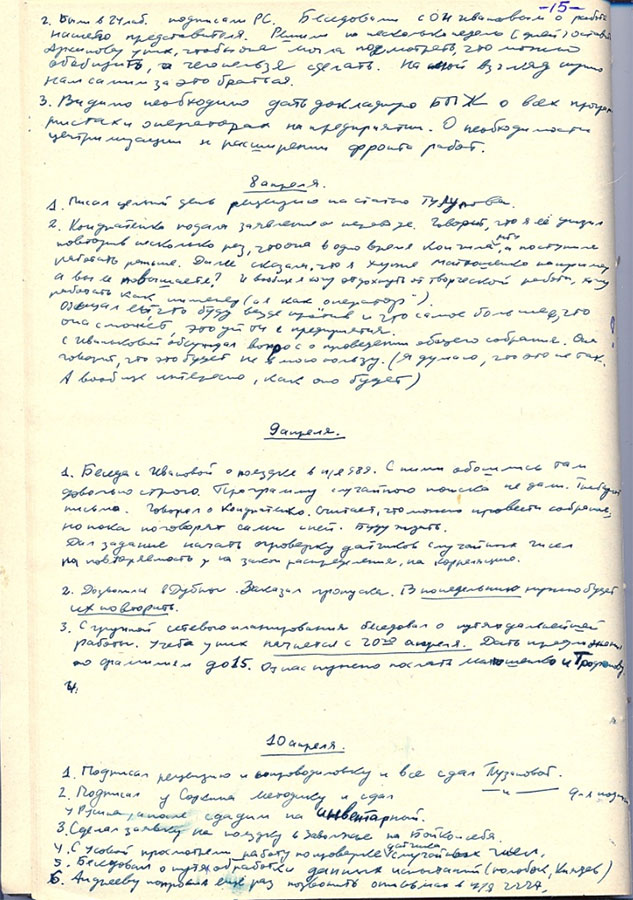 -15-
2. Были в 24 лаб. подписали РС. Беседовали с О.Н. Ивановым о работе
нашего представителя. Решили на несколько недель (дней) оставить
у них, чтобы она могла посмотреть, что можно
обобщить, а чего нельзя сделать. На мой взгляд нужно
нам самим за это браться.
3. Видимо необходимо дать докладную БЫЖ о всех программистах
и операторах на предприятии. О необходимости
централизации и расширении фронта работ.
8 апреля.
1. Писал целый день рецензию на статью
2. Кондратенко подала заявление о переводе. Говорит, что я её унизил
повторив несколько раз, что она в одно время кончила, и поступила
работать раньше. Далее сказала, что я хуже Матюшенко например
а вы не повышаете? И вообще я хочу отдохнуть от творческой работы, хочу
работать как инженер (а я как оператор").
Обещал ей, что буду везде против и что самое большее, что
она сможет, это уйти с предприятия.
С Ивановой обсуждал вопрос о проведении общего собрания. Она
говорит, что это будет не в мою пользу. (Я думаю, что это не так.
А вообще интересно, как оно будет)
9 апреля.
1. Беседа с Ивановой о поездке в п/я 989. С ними обошлись там
довольно строго. Программу случайного поиска не дали. Требуют
письмо. Говорил о Кондратенко. Считает, что можно провести собрание,
но пока поговорят сами с ней. Буду ждать.
Дал задание начать проверку датчиков случайных чисел
на повторяемость и на закон распределения, на корреляцию.
2. Дозвонился в Дубну. Заказал пропуска. В понедельник нужно будет
их повторить.
3. С группой сетевого планирования беседовал о путях дальнейшей
работы. Учёба у них начнется с 20го апреля. Дать предложения
по фамилиям до 15. От нас нужно послать Матюшенко и
4.
10 апреля.
1. Подписал рецензию и сопроводиловку и все сдал Пузановой.
2. Подписал у Соркина методику и сдал —"— для
у Рузина, а после сдадим на инвентарной.
3. Сделал заявку на поездку в Заволжье на Бойко и себя.
4. С Усовой просмотрели работу по проверке датчика случайных чисел.
5. Беседовали о путях обработки данных испытаний (Колобок, Князев)
6. Андрееву попросил ещё раз позвонить